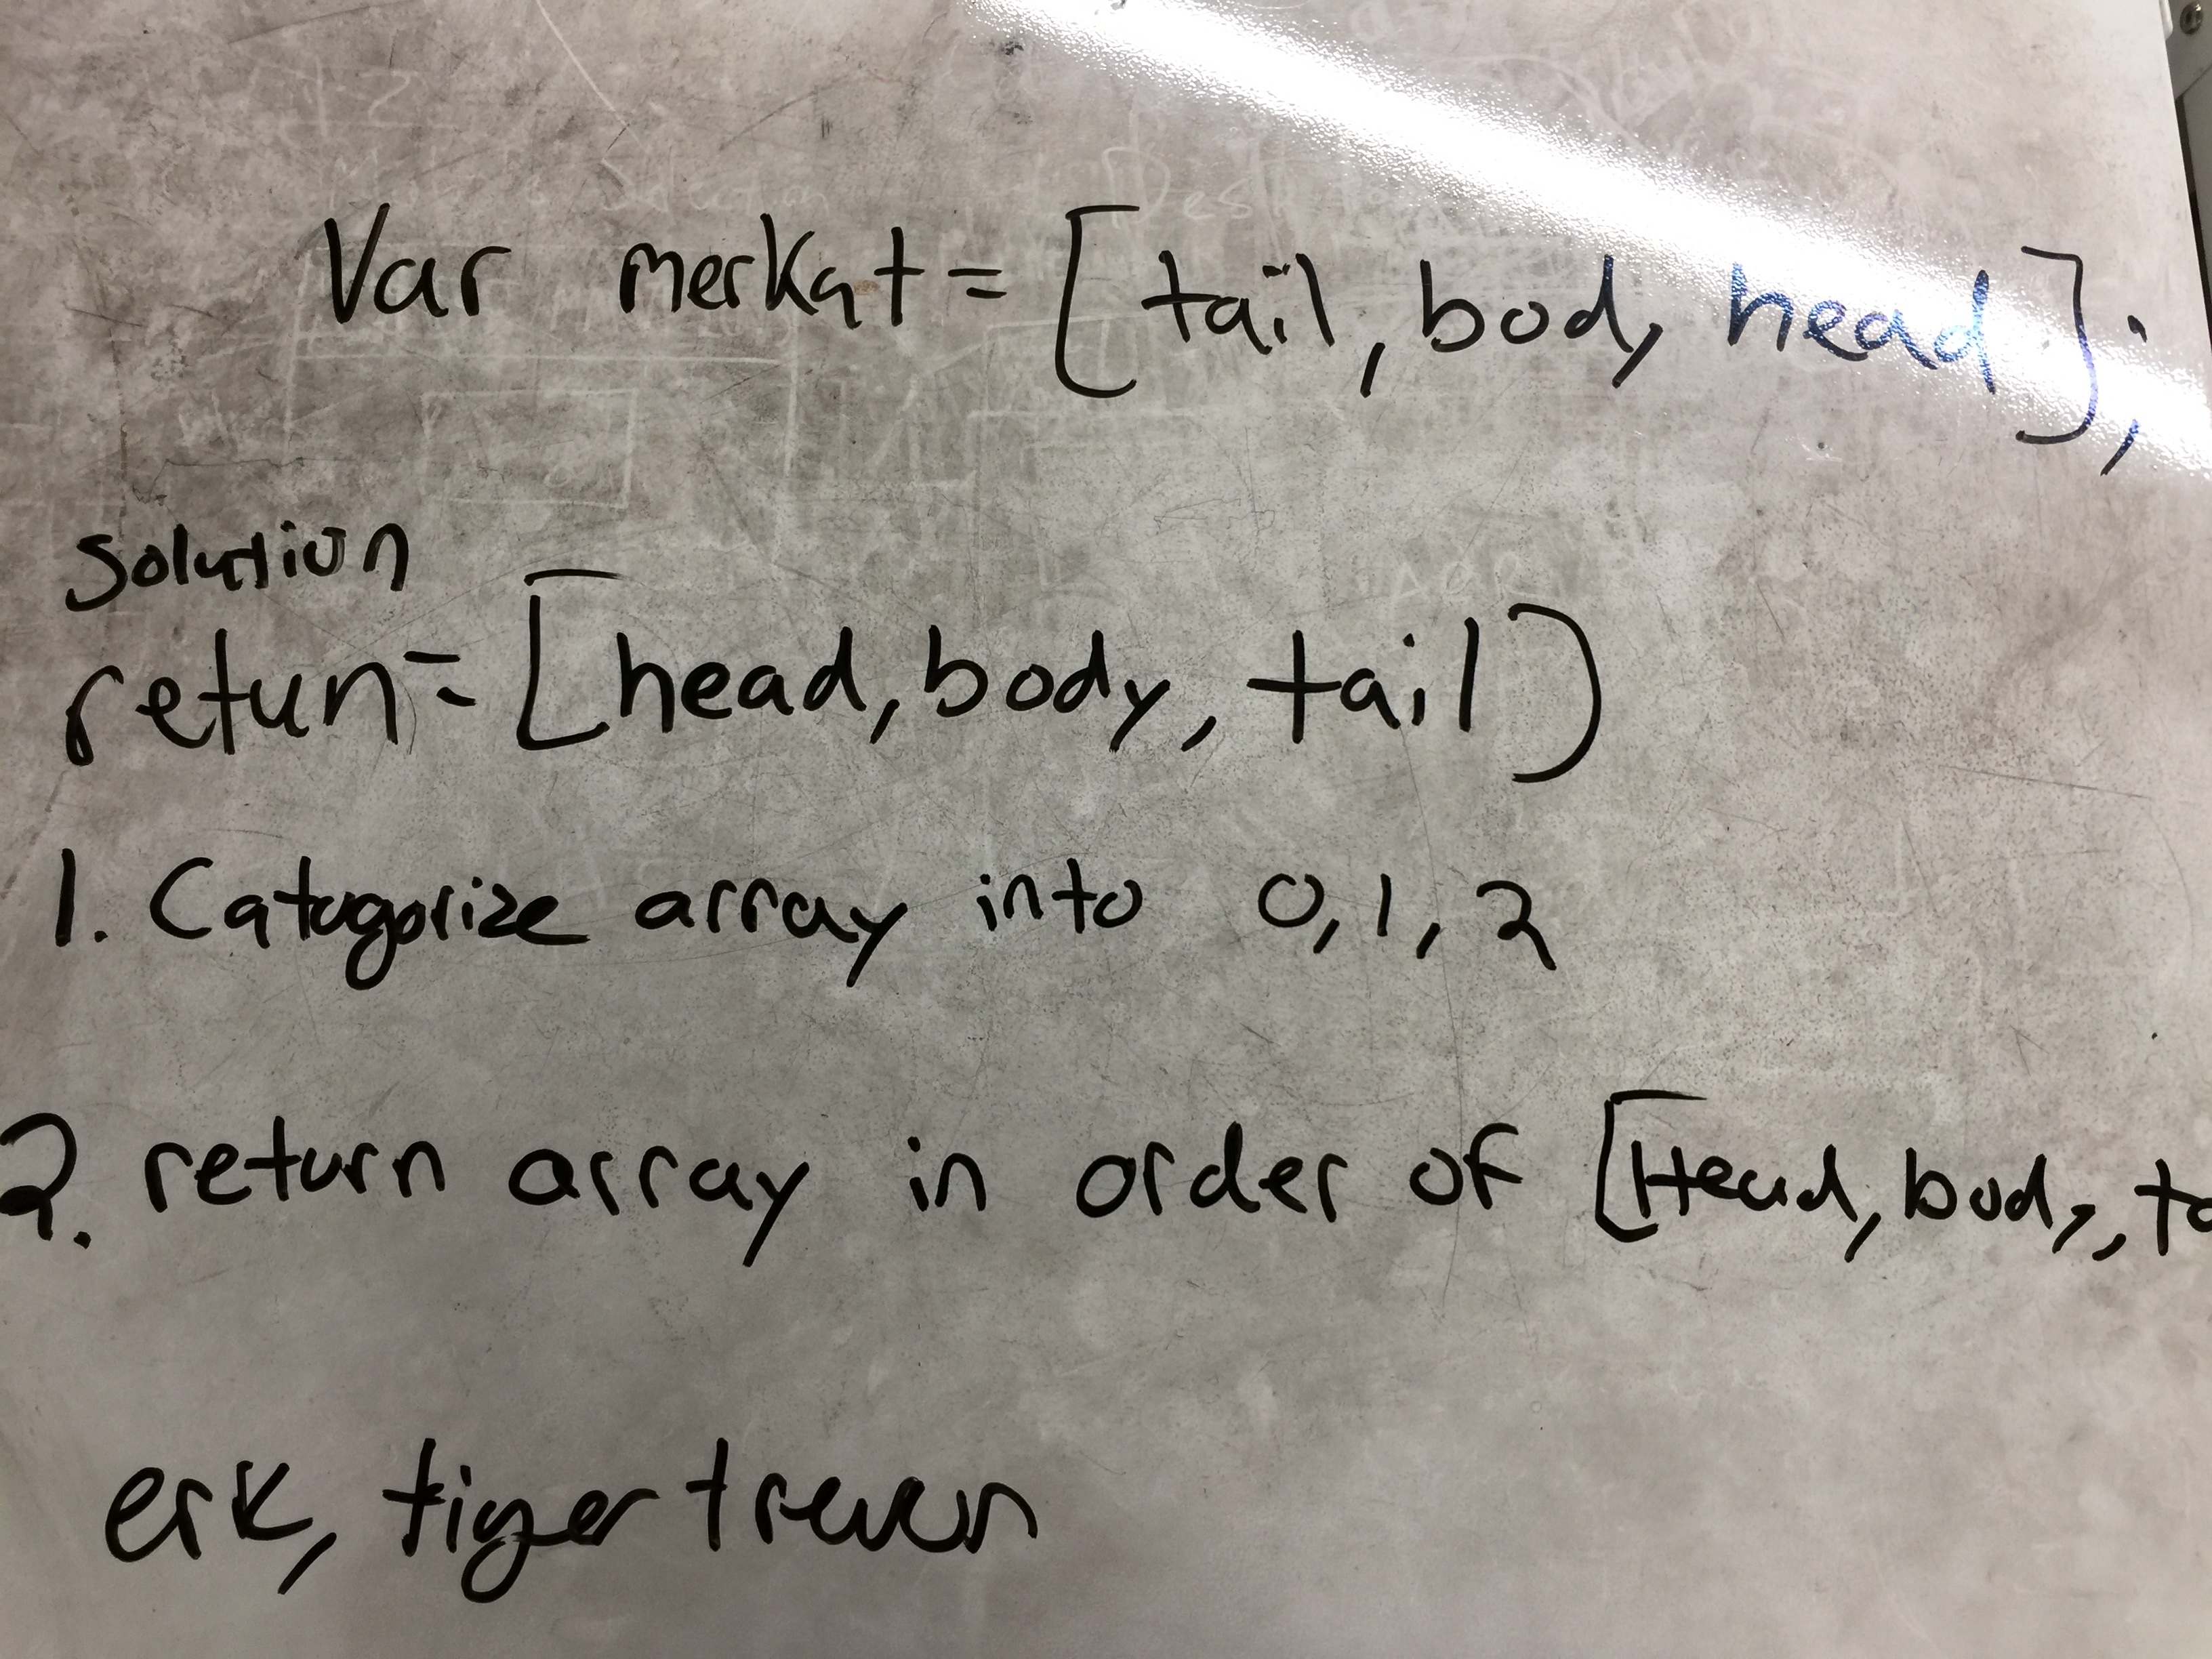 Var merkat = [tail, body, head];
Solution
return = [head, body, tail)
1. Catugorize array into 0,1,2
2. return array in order of [Head, body, ta
erk, tiger